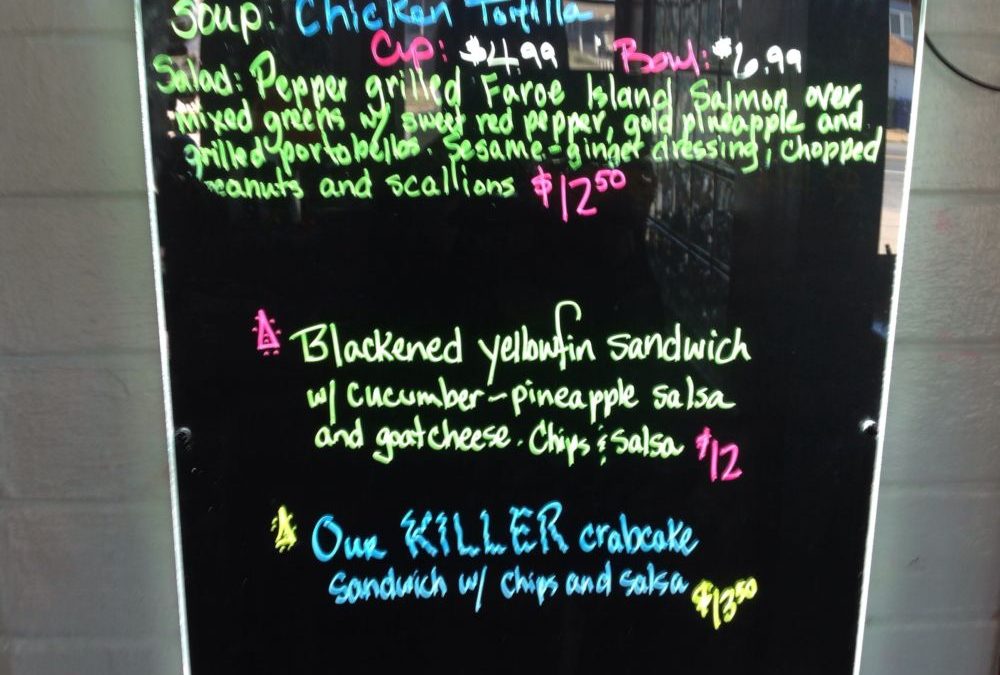 Soup: Chicken Tortilla
Cup: $4.99 Bowl: $6.99
Salad: Pepper grilled Faroe Island Salmon over
mixed greens w/ sweet red pepper, gold pineapple and
grilled portobellos. Sesame-ginger dressing, chopped
peanuts and scallions $12.50
Blackened yellowfin sandwich
w/ cucumber-pineapple salsa
and goat cheese. Chips & Salsa $12
Our KILLER crabcake
sandwich w/ chips and salsa $13.50